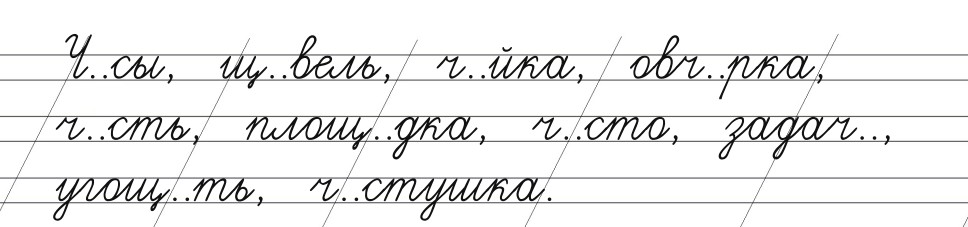 Ч..сы, щ..вель, ч..йка, овч..рка,
ч..сть, площ..дка, ч..сто, задач..,
угощ..ть, ч..стушка.